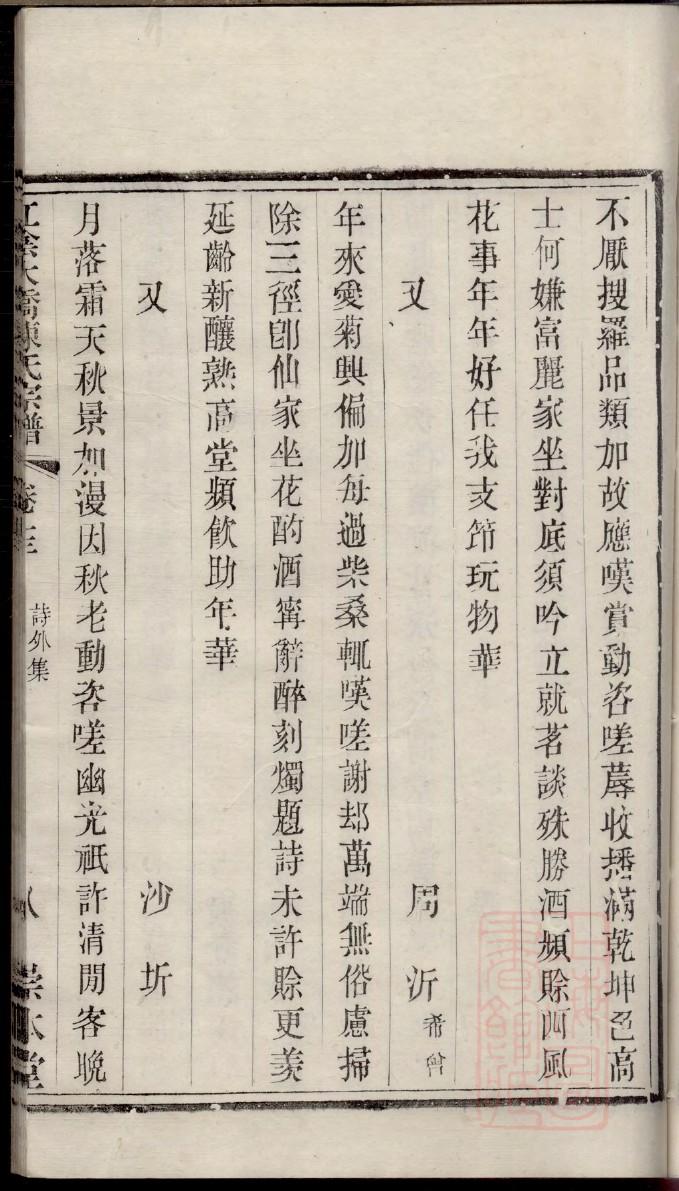 不厭搜羅品類加故應嘆賞動咨嗟蓐收播滿乾坤色高
士何嫌富麗家坐對底須吟立就茗談殊勝酒頻賒西風
花事年年好任我支笻玩物華
又　周沂 希曾
年來愛菊興偏加每過柴桑輒嘆嗟謝却萬端無俗慮掃
除三徑卽仙家坐花酌酒甯辭醉刻燭題詩未許賒更羨
延齡新釀熟高堂頻飮助年華
又　沙圻
月落霜天秋景加漫因秋老動咨嗟幽光祇許清閒客晚
江陰大橋陳氏宗譜
詩外集
八
崇本堂